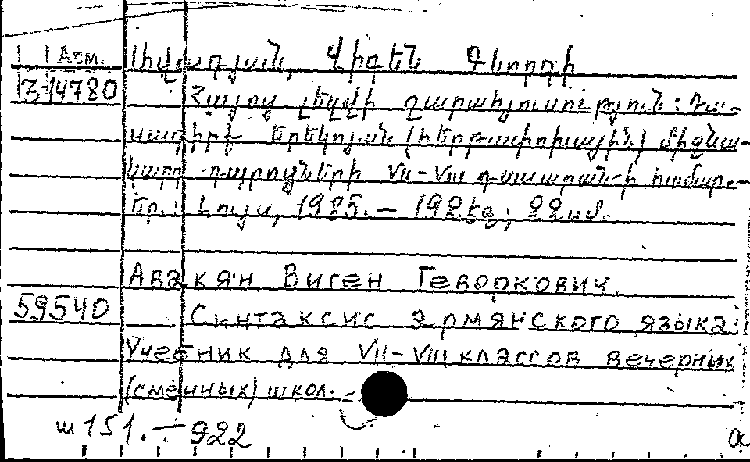 1 1 Атм. Ավագյան, Վիգեն Գևորգի
З-14780 Հայոց լեզվի շարահյուսություն: Դա-
սագիրք երեկոյան (հերթափոխային) միջնա-
կարգ դպրոցների VII-VIII դասարանների համար.-
Եր.: Լույս, 1985.- 192 էջ; 22 սմ.
Авакян Виген Геворкович.
59540 Синтаксис армянского языка:
Учебник для VII-VIII классов вечерных
(сменных) школ. -
ա 151. - 922